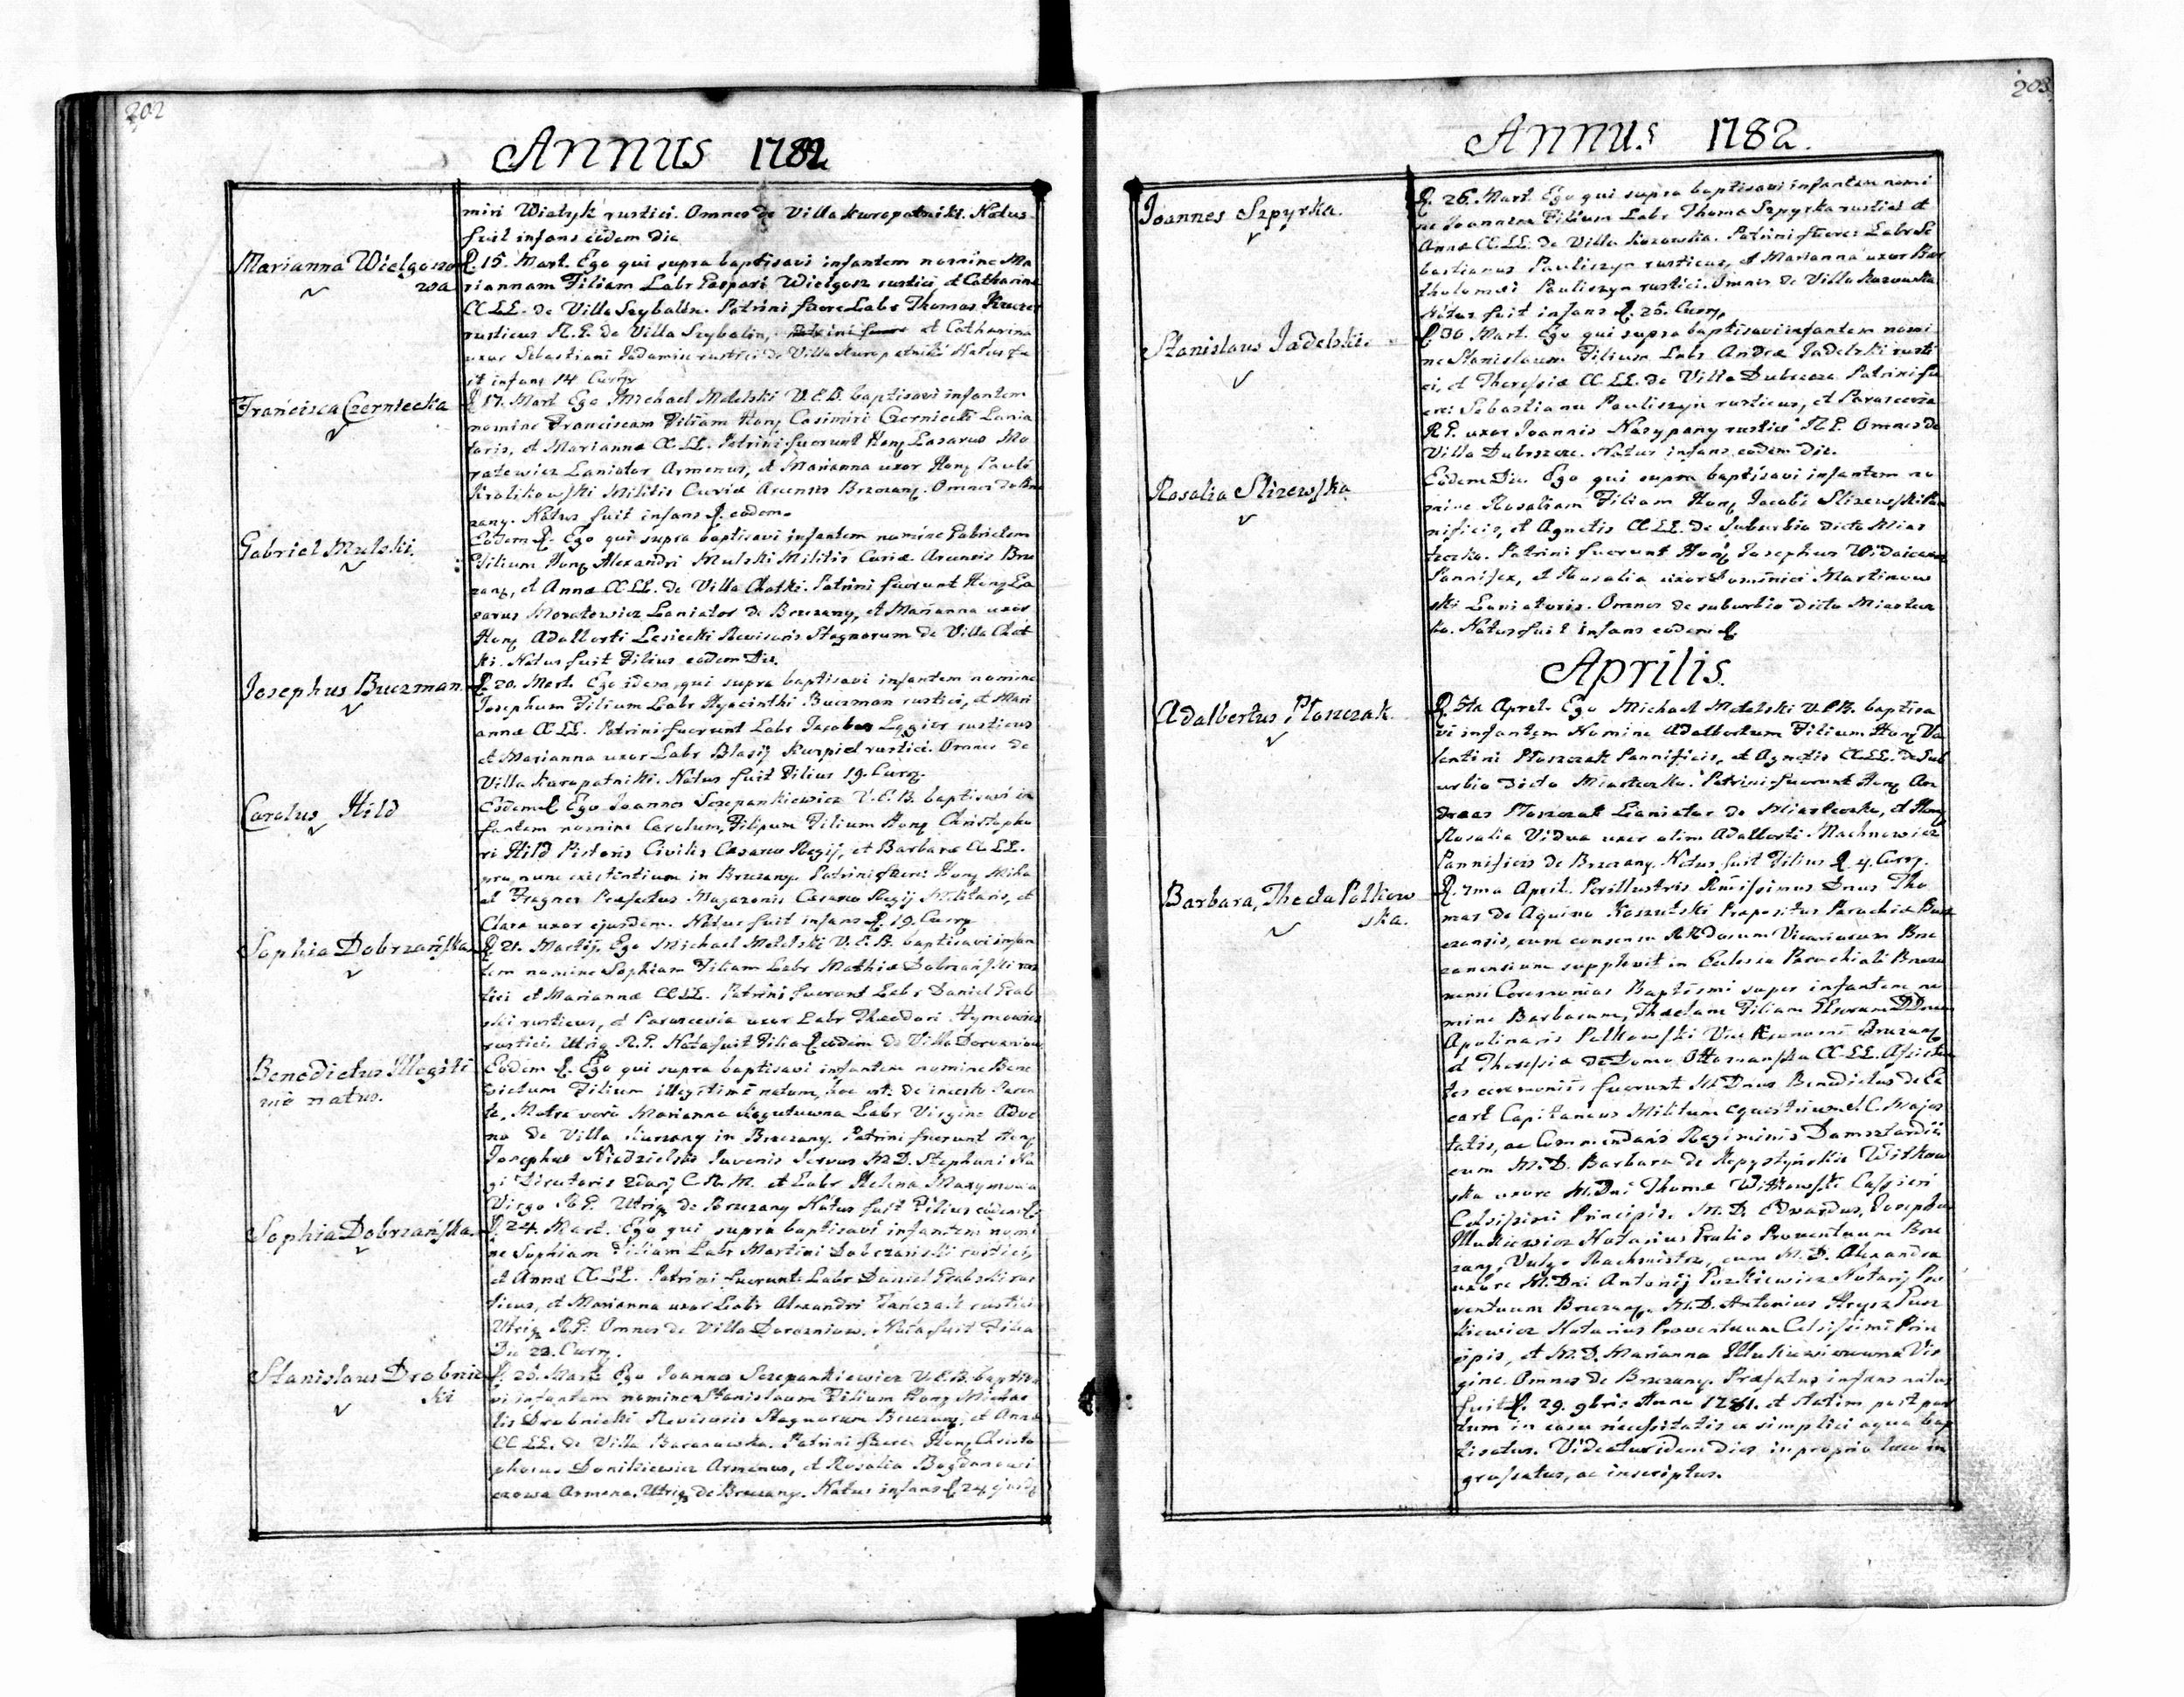 202
Annus 1782
miri Wiatyk rustici. Omnes de Villa Kuropatniki. Natus
fuit infans eodem die
Marianna Wielgoszo
wa
D. 15. Mart. Ego qui supra baptisavi infantem nomine Ma
riannam Filiam Labr Caspari Wielgosz rustici, et Catharinæ
CC LL. de Villa Szybalin. Patrini fuere Labr Thomas
rusticus R. G. de Villa Szybalin, et Catharina
uxor Sebastiani rustici de Villa Kuropatniki Natus fu
it infans 14 Curr
Francisca Czerniecka
D 17. Mart Ego Michael Melelski V.E.B. baptisavi infantem
nomine Franciscam Filiam Hon Casimiri Czerniecki Lania
toris, et Mariannæ CC LL. Patrini fuerunt Hon Lasarus Mo
ratewicz Laniator Armenus, et Marianna uxor Hon Pauli
Krolikowski Militis Curiæ Arcensis Brzezan. Omnes de Brze
zany. Natus fuit infans D. eodem.
Gabriel Mulski.
Eodem D. Ego qui supra baptisavi infantem nomine Gabrielem
Filium Hon Alexandri Mulski Militis Curiæ Arcensis Brze
zan, et Annæ CC LL. de Villa Chatki. Patrini fuerunt Hon La
sarus Moratewicz Laniator de Brzezany, et Marianna uxor
Hon Adalberti Lesiecki Revisoris Stagnorum de Villa Chat
ki. Natus fuit Filius eodem Die.
Josephus Buczman.
D. 20. Mart. Ego idem, qui supra baptisavi infantem nomine
Josephum Filium Labr Hyacinthi Buczman rustici, et Mari
annæ CC LL. Patrini fuerunt Labr Jacobus rusticus
et Marianna uxor Labr Blasij Kurpiel rustici. Omnes de
Villa Kuropatniki. Natus fuit Filius 19. Curr.
Carolus Hild
Eodem D Ego Joannes Szczepankiewicz V.E.B. baptisavi in
fantem nomine Carolum, Filipum Filium Hon Christopho
ri Hild Pistoris Civilis Cæsareo Regij, et Barbaræ CC LL.
pro nunc existentium in Brzezany. Patrini fuere Hon Micha
el Præfectus Magazenis Cæsareo Regij Militaris, et
Clara uxor ejusdem. Natus fuit infans D. 19. Curr
Sophia Dobrzańska
D 21. Martij. Ego Michael Melelski V.E.B. baptisavi infan
tem nomine Sophiam Filiam Labr Mathiæ Dobrzański rus
tici et Mariannæ CC LL. Patrini fuerunt Labr Daniel Grab
ski rusticus, et Parascevia uxor Labr Theodori Hymowicz
rustici. Utriq R.G. Nata fuit Filia D eodem de Villa
Benedictus Illegiti
mè natus.
Eodem D. Ego qui supra baptisavi infantem nomine Bene
dictum Filium illegitimè natum, hoc est: de incerto Paren
te, Matre verò Marianna Kogutuwna Labr Virgine Adve
na de Villa Kurzany in Brzezany. Patrini fuerunt Hon
Josephus Niedzielski Juvenis servus M.D. Stephani Na
gi et Labr Helena Maxymowa
Virgo R.G. Utriq de Brzezany Natus fuit Filius eodem D.
Sophia Dobrzańska.
D. 24. Mart. Ego qui supra baptisavi infantem nomi
ne Sophiam Filiam Labr Martini Dobrzański rustici,
et Annæ CC LL. Patrini fuerunt Labr Daniel Grabski rus
ticus, et Marianna uxor Labr Alexandri rustici
Utriq R.G. Omnes de Villa Nata fuit Filia
Die 22. Curr.
Stanislaus Drobnic
ki
D. 25. Mart. Ego Joannes Szczepankiewicz V.E.B. baptisa
vi infantem nomine Stanislaum Filium Hon Michae
lis Drobnicki Revisoris Stagnorum Brzezan, et Annæ
CC LL. de Villa Baranowka. Patrini fuere Hon Christo
phorus Donikiewicz Armenus, et Rosalia Bogdanowi
czowa Armena. Utriq de Brzezany. Natus infans D 24 ejusd
203
Annus 1782.
Joannes Szpyrka.
D. 26. Mart. Ego qui supra baptisavi infantem nomi
ne Joannem Filium Labr Thomæ Szpyrka rustici et
Annæ CC LL. de Villa Kozowka. Patrini fuere Labr Se
bastianus Pauliszyn rusticus, et Marianna uxor Bar
tholomæi Pauliszyn rustici. Omnes de Villa Kozowka
Natus fuit infans D. 25. Curr
Stanislaus Jadelski.
D. 30. Mart. Ego qui supra baptisavi infantem nomi
ne Stanislaum Filium Labr Andreæ Jadelski rusti
ci, et Theresiæ CC LL. de Villa Dubszcze Patrini fu
ere: Sebastianus Pauliszyn rusticus, et Parascevia
R.G. uxor Joannis Nasypany rustici R.G. Omnes de
Villa Dubszcze. Natus infans eodem die.
Rosalia Slizewska
Eodem Die Ego qui supra baptisavi infantem no
mine Rosaliam Filiam Hon Jacobi Slizewski Pan
nificis, et Agnetis CC LL. de Suburbio dicto Mias
teczko. Patrini fuerunt Hon Josephus
Pannifex, et Rosalia uxor Dominici Martinow
ski Laniatoris. Omnes de suburbio dicto Miastecz
ko. Natus fuit infans eodem D.
Aprilis.
Adalbertus Ptaszzak
D. 5ta Aprel. Ego Michael Melelski V.E.B. baptisa
vi infantem Nomine Adalbertum Filium Hon Va
lentini Ptaszzak Pannificis, et Agnetis CC LL. de Sub
urbio dicto Miasteczko. Patrini fuerunt Hon An
dreas Ptaszzak Laniator de Miasteczko, et Hon
Rosalia Vidua uxor olim Adalberti Machnowicz
Pannificis de Brzezany. Natus fuit Filius D. 4. Curr.
Barbara, Thecla Palkow
ska.
D. 7ma April. Perillustris Rmissimus Dnus Tho
mas de Aquino Præpositus Parochiæ Brze
zanensis, cum consensu RRdorum Vicariorum Brze
zanensium supplevit in Ecclesia Parochiali Brzeza
nensi Ceremonias Baptismi super infantem no
mine Barbaram, Theclam Filiam
Apolinaris Palkowski
et Theresiæ de Domo Ottomanska CC LL. Assisten
tes ceremonijs fuerunt M. Dnus Benedictus de
Capitaneus Militum equestrium C. Majes
tatis, ac Commendans Regiminis
cum M. D. Barbara de Witkow
ska uxore M. Dni Thomæ Witkowski Cassieri
Celsissimi Principis. M. D. Edvardus, Josephus
Notarius Proventuum Brze
zan, Vulgo Rachmistrz, cum M. D. Alexandra
uxore M. Dni Antonij Puzkiewicz Notarij Pro
ventuum Brzezan. M. D. Antonius Puz
kiewicz Notarius Proventuum Celsissimi Prin
cipis, et M. D. Marianna Vir
gine. Omnes de Brzezany. Præfatus infans natus
fuit D. 29. 9bris Anno 1781. et statim post par
tum in casu necessitatis ex simplici aqua bap
tisatus. Videatur idem dies in proprio loco in
grossatus, ac inscriptus.